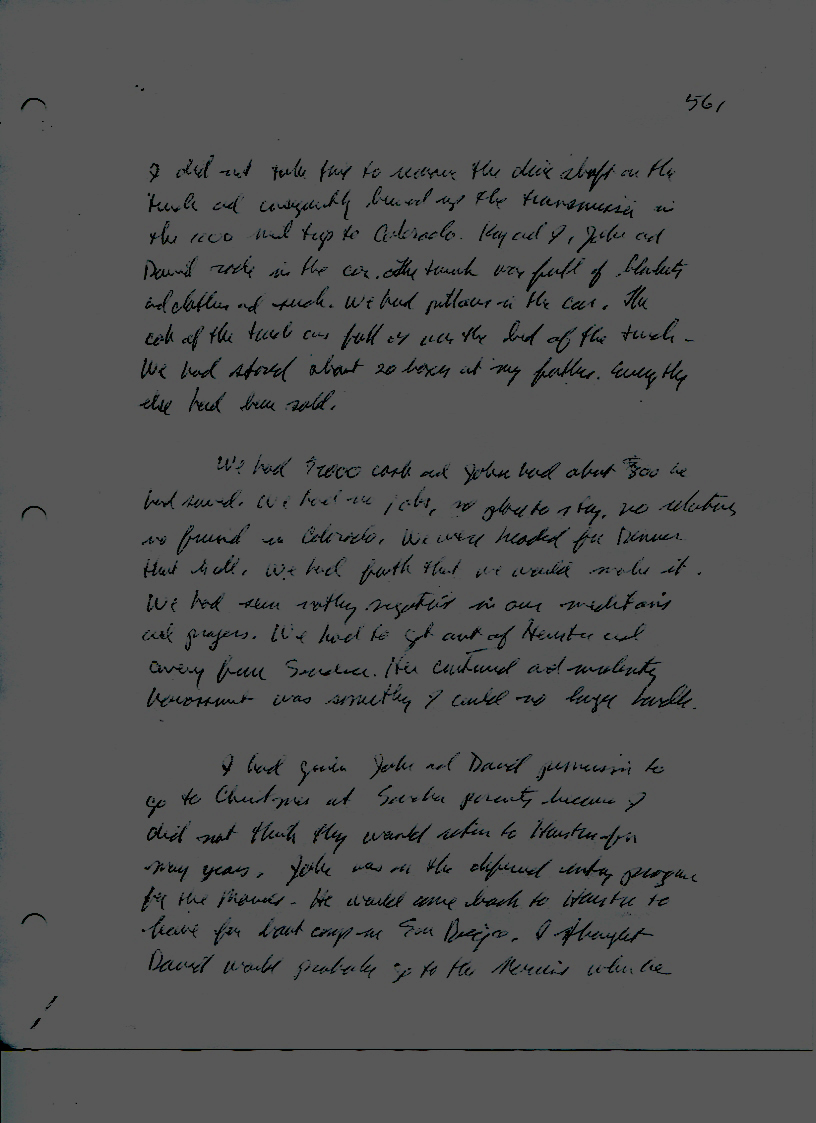 561
I did not take time to remove the drive shaft on the
truck and consequently burned up the transmission in
the 1000 mile trip to Colorado. Kay and I, John and
David rode in the car. The truck was full of blankets
and clothes and such. We had pillows in the car. The
cab of the truck was full as was the bed of the truck -
We had stored about 20 boxes at my father. Everything
else had been sold.
We had $2000 cash and John had about $300 he
had saved. We had no jobs, no place to stay, no relatives
no friend in Colorado. We were headed for Denver
that is all. We had faith that we would make it.
We had seen nothing negative in our meditations
and prayers. We had to get out of Houston and
away from Sandra. Her continued and
harassment was something I could no longer handle.
I had given John and David permission to
go to Christmas at Sandra parents because I
did not think they would return to Houston for
many years. John was in the deferred entry program
for the Marines - He would come back to Houston to
leave for boot camp in San Diego. I thought
David would probably go to the Marines when he